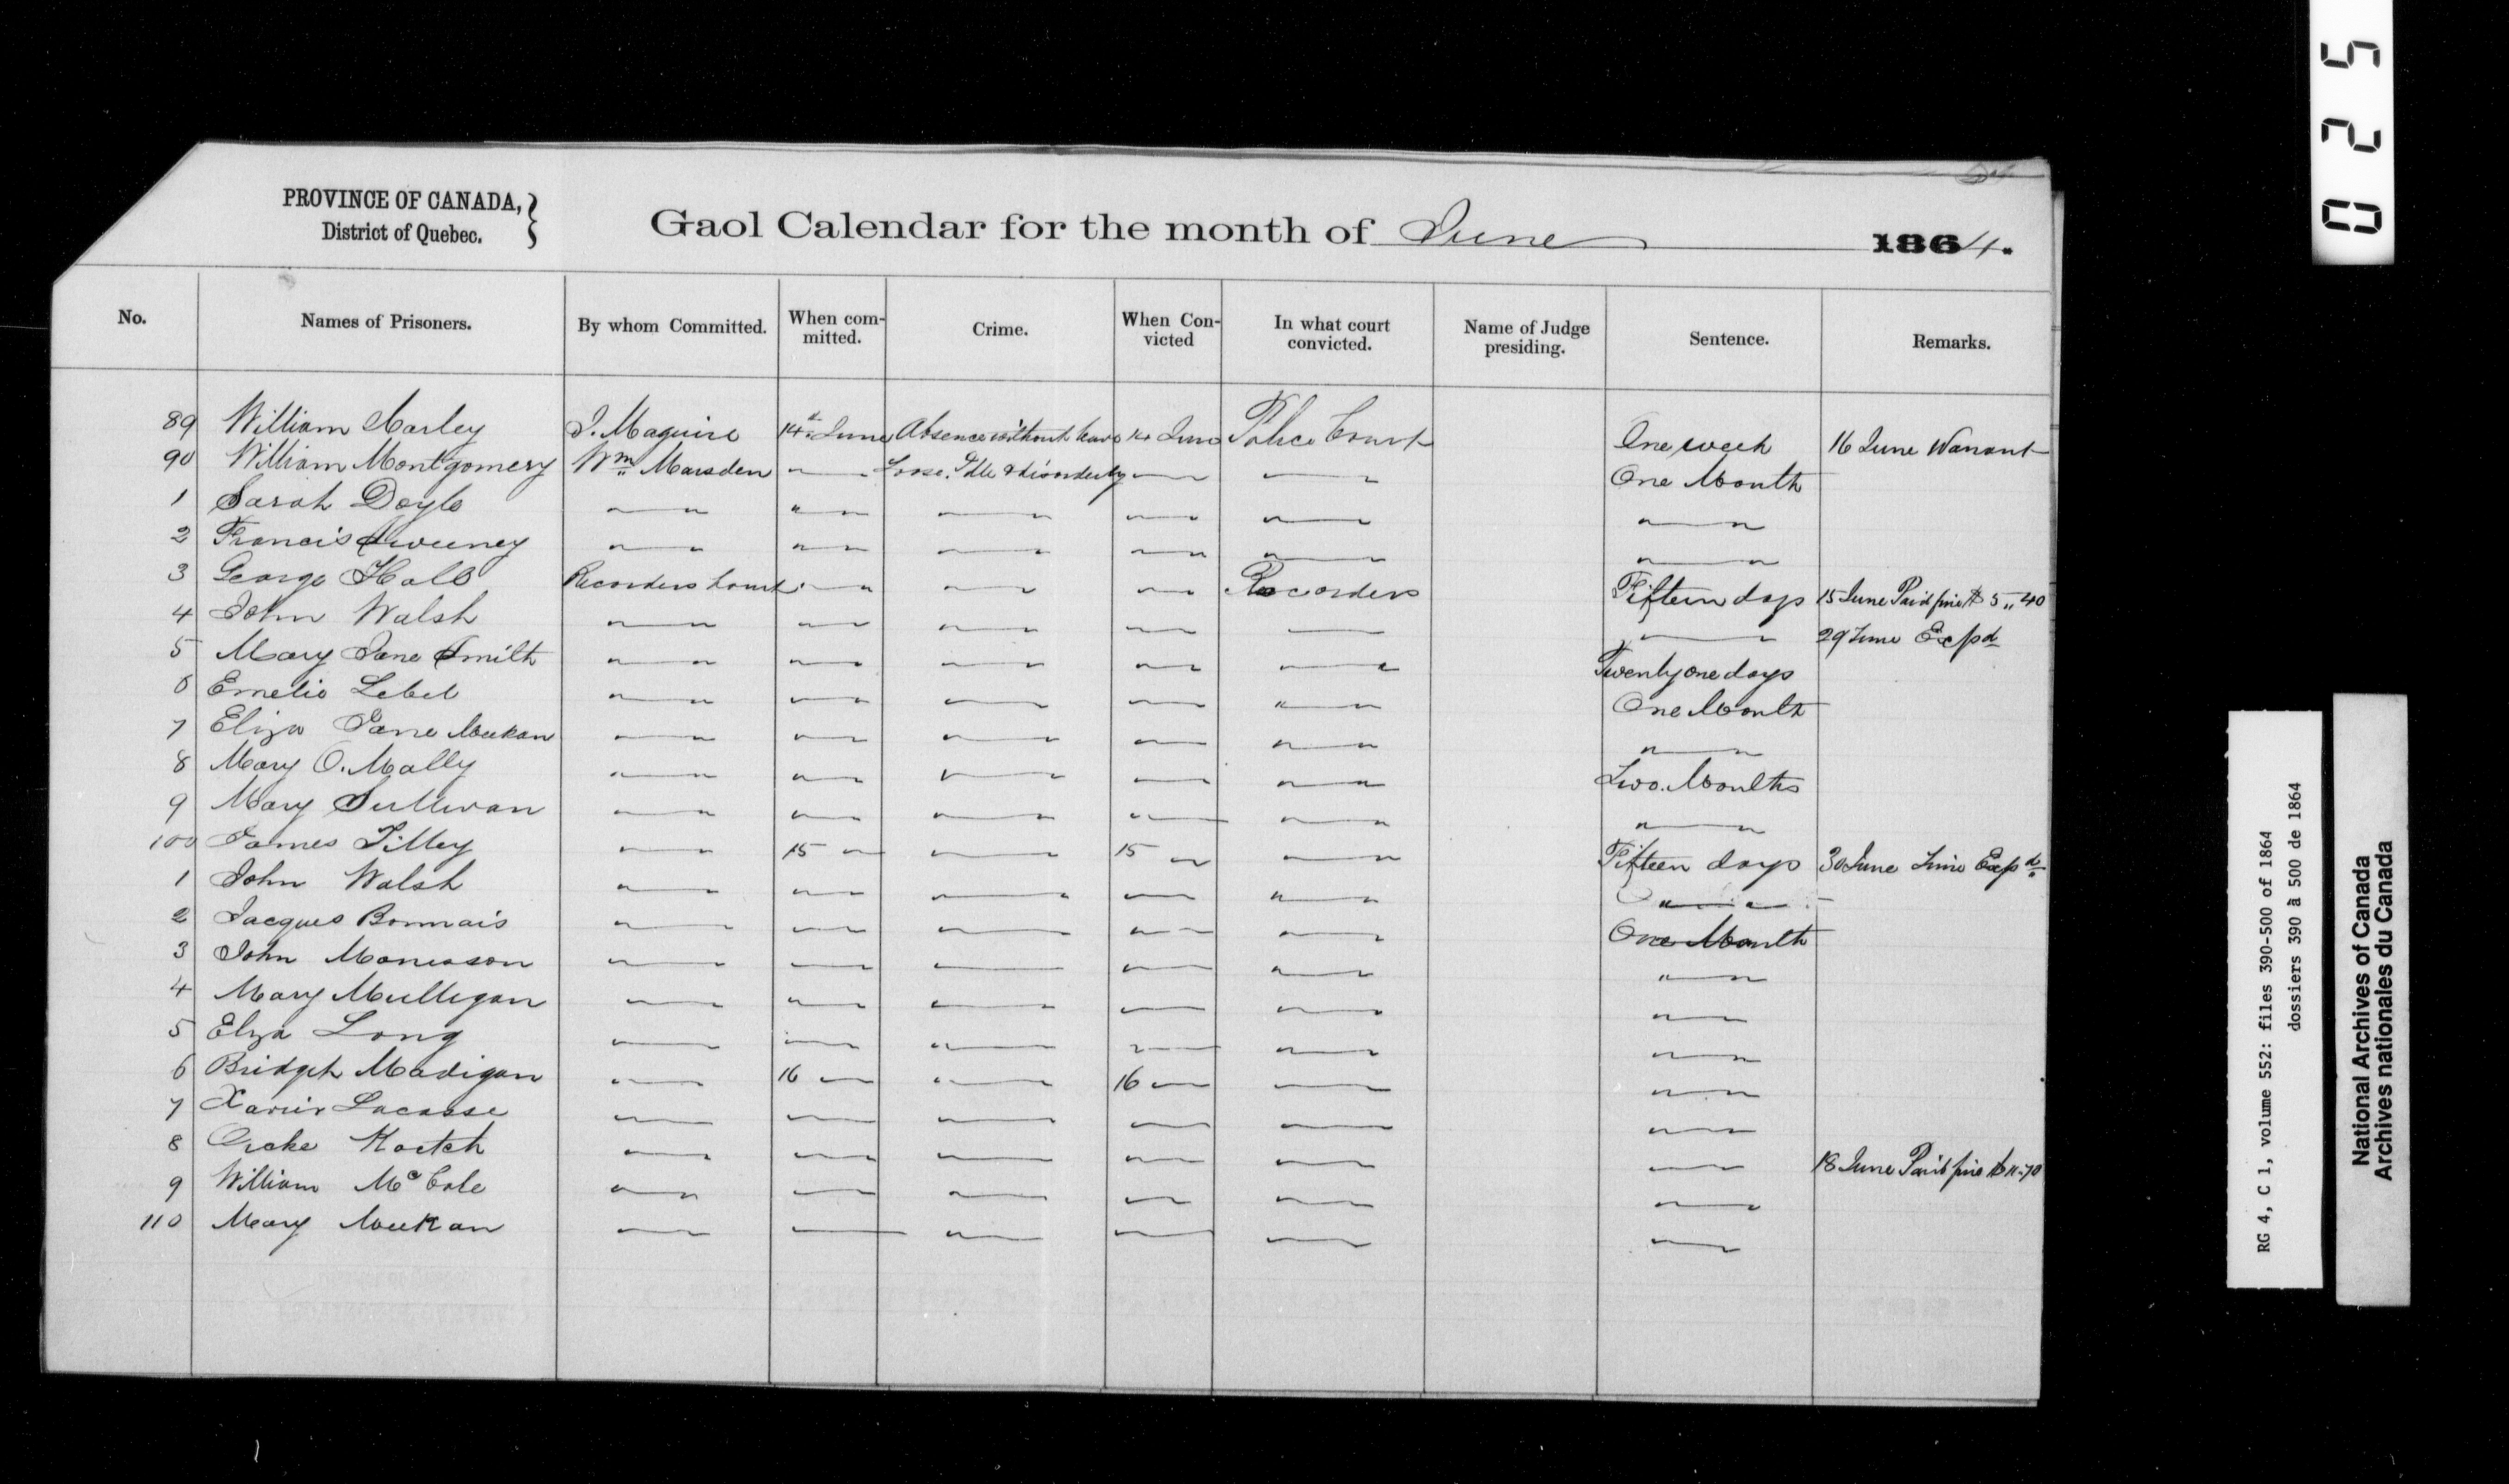 PROVINCE OF CANADA,
District of Quebec.
Gaol Calendar for the month of June 1864.
No. Names of Prisoners. By whom Committed. When com-mitted. Crime. When Con-victed In what court convicted. Name of Judge presiding. Sentence. Remarks.
89 William Marley J. Maguire 14th June Absence without leave 14 June Police Court One week 16 June Warrant
90 William Montgomery Wm Marsden " Loose, Idle & disorderly " " One Month
1 Sarah Doyle " " " " " "
2 Francis Sweeney " " " " " "
3 George Hall Recorders Court " " " Recorders Fifteen days 15 June Paid fine $5,,40
4 John Walsh " " " " " " 29 June Expd
5 Mary Jane Smith " " " " " Twenty one days
6 Emelie Lebel " " " " " One Month
7 Eliza Jane Meekan " " " " " "
8 Mary O. Mally " " " " " Two Months
9 Mary Sullivan " " " " " "
100 James Tilley " 15 " " 15 " " Fifteen days 30 June Time Expd
1 John Walsh " " " " " "
2 Jacques Bonnais " " " " " One Month
3 John " " " " " "
4 Mary Mulligan " " " " " "
5 Eliza Long " " " " " "
6 Bridget Madigan " 16 " " 16 " " "
7 Xavier Lacasse " " " " " "
8 " " " " " " 18 June Paid fine
9 William McCole " " " " " "
110 Mary Meekan " " " " " "
025
RG 4, C 1, volume 552: files 390-500 of 1864
dossiers 390 à 500 de 1864
National Archives of Canada
Archives nationales du Canada